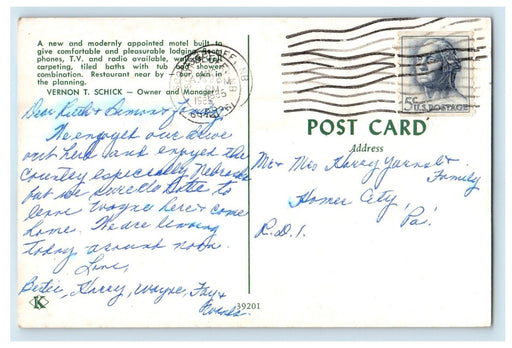 A new and modernly appointed motel built to
give comfortable and pleasurable lodging. Room
phones, T.V. and radio available, wall to wall
carpeting, tiled baths with tub and shower
combination. Restaurant near by — our own in
the planning.
VERNON T. SCHICK — Owner and Manager
5¢ U.S. POSTAGE
POST CARD
Address
Dear Ruth &
We enjoyed our drive
out here and enjoyed the
country especially Nebraska
but we sure to
leave Wayne here & come
home. We are leaving
today around noon.
Love,
Betty, Harry, Wayne, Fay &
Mr & Mrs Harry &
Family
Homer City,
Pa.
R.D.1.
K
39201